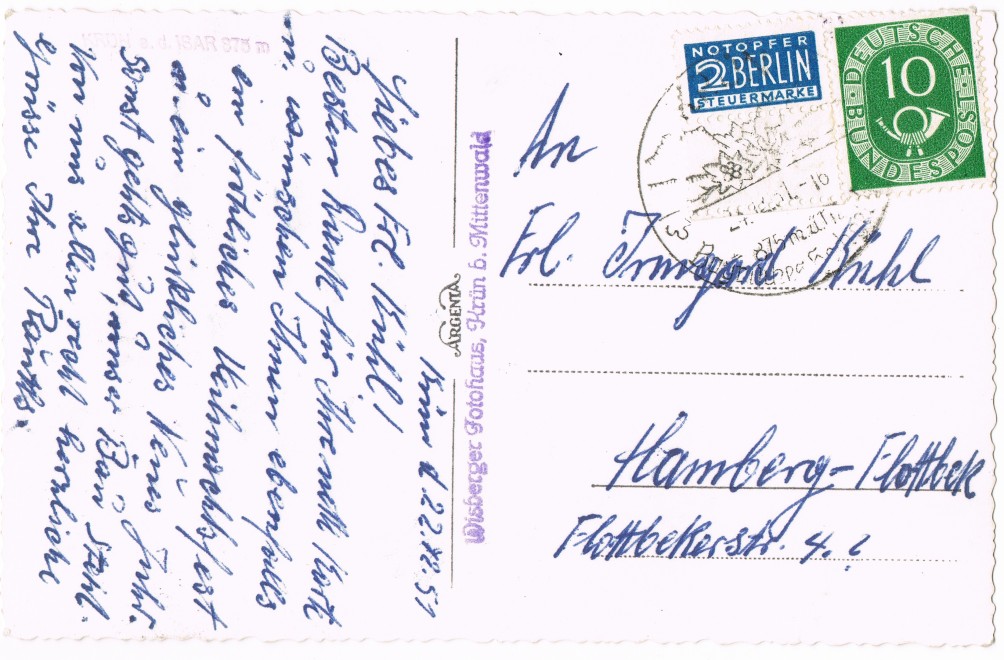 KRÜN a. d. ISAR 875 m
Krün d. 22.12.51
Liebes Frl. Kühl!
Besten Dank für Ihre nette Karte
u. wünschen Ihnen ebenfalls
ein fröhliches Weihnachtsfest
u. ein glückliches Neues Jahr.
Sonst geht's uns
Von uns allen recht herzliche
Grüsse Ihre
ARGENTA
Wisberger Fotohaus, Krün b. Mittenwald
NOTOPFER
2 BERLIN
STEUERMARKE
DEUTSCHE BUNDESPOST
10
An
Frl. Irmgard Kühl
Hamburg-Flottbek
Flottbekerstr. 4.